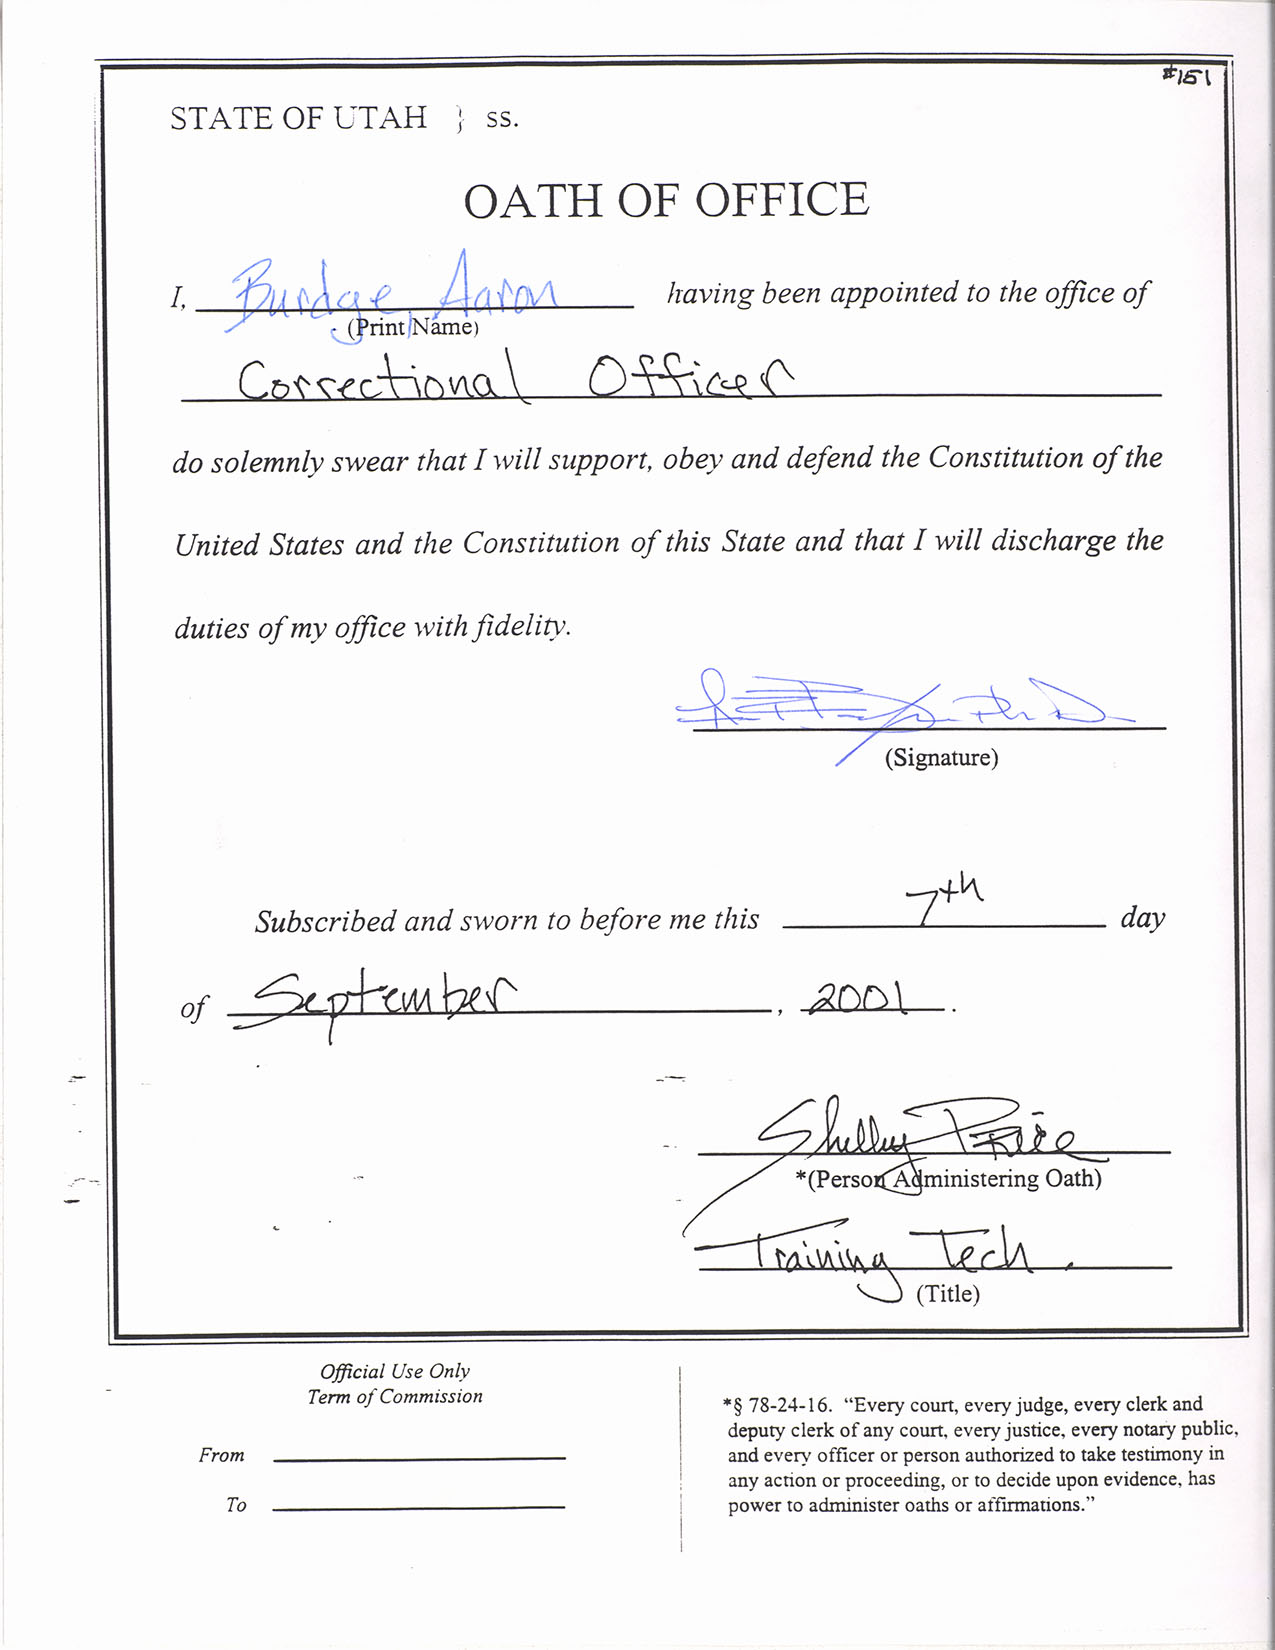 #151
STATE OF UTAH } ss.
OATH OF OFFICE
I, Burdge Aaron having been appointed to the office of
(Print Name)
Correctional Officer
do solemnly swear that I will support, obey and defend the Constitution of the
United States and the Constitution of this State and that I will discharge the
duties of my office with fidelity.
(Signature)
Subscribed and sworn to before me this 7th day
of September, 2001.
Shelley Price
*(Person Administering Oath)
Training Tech.
(Title)
Official Use Only
Term of Commission
From
To
*§ 78-24-16. “Every court, every judge, every clerk and
deputy clerk of any court, every justice, every notary public,
and every officer or person authorized to take testimony in
any action or proceeding, or to decide upon evidence, has
power to administer oaths or affirmations.”